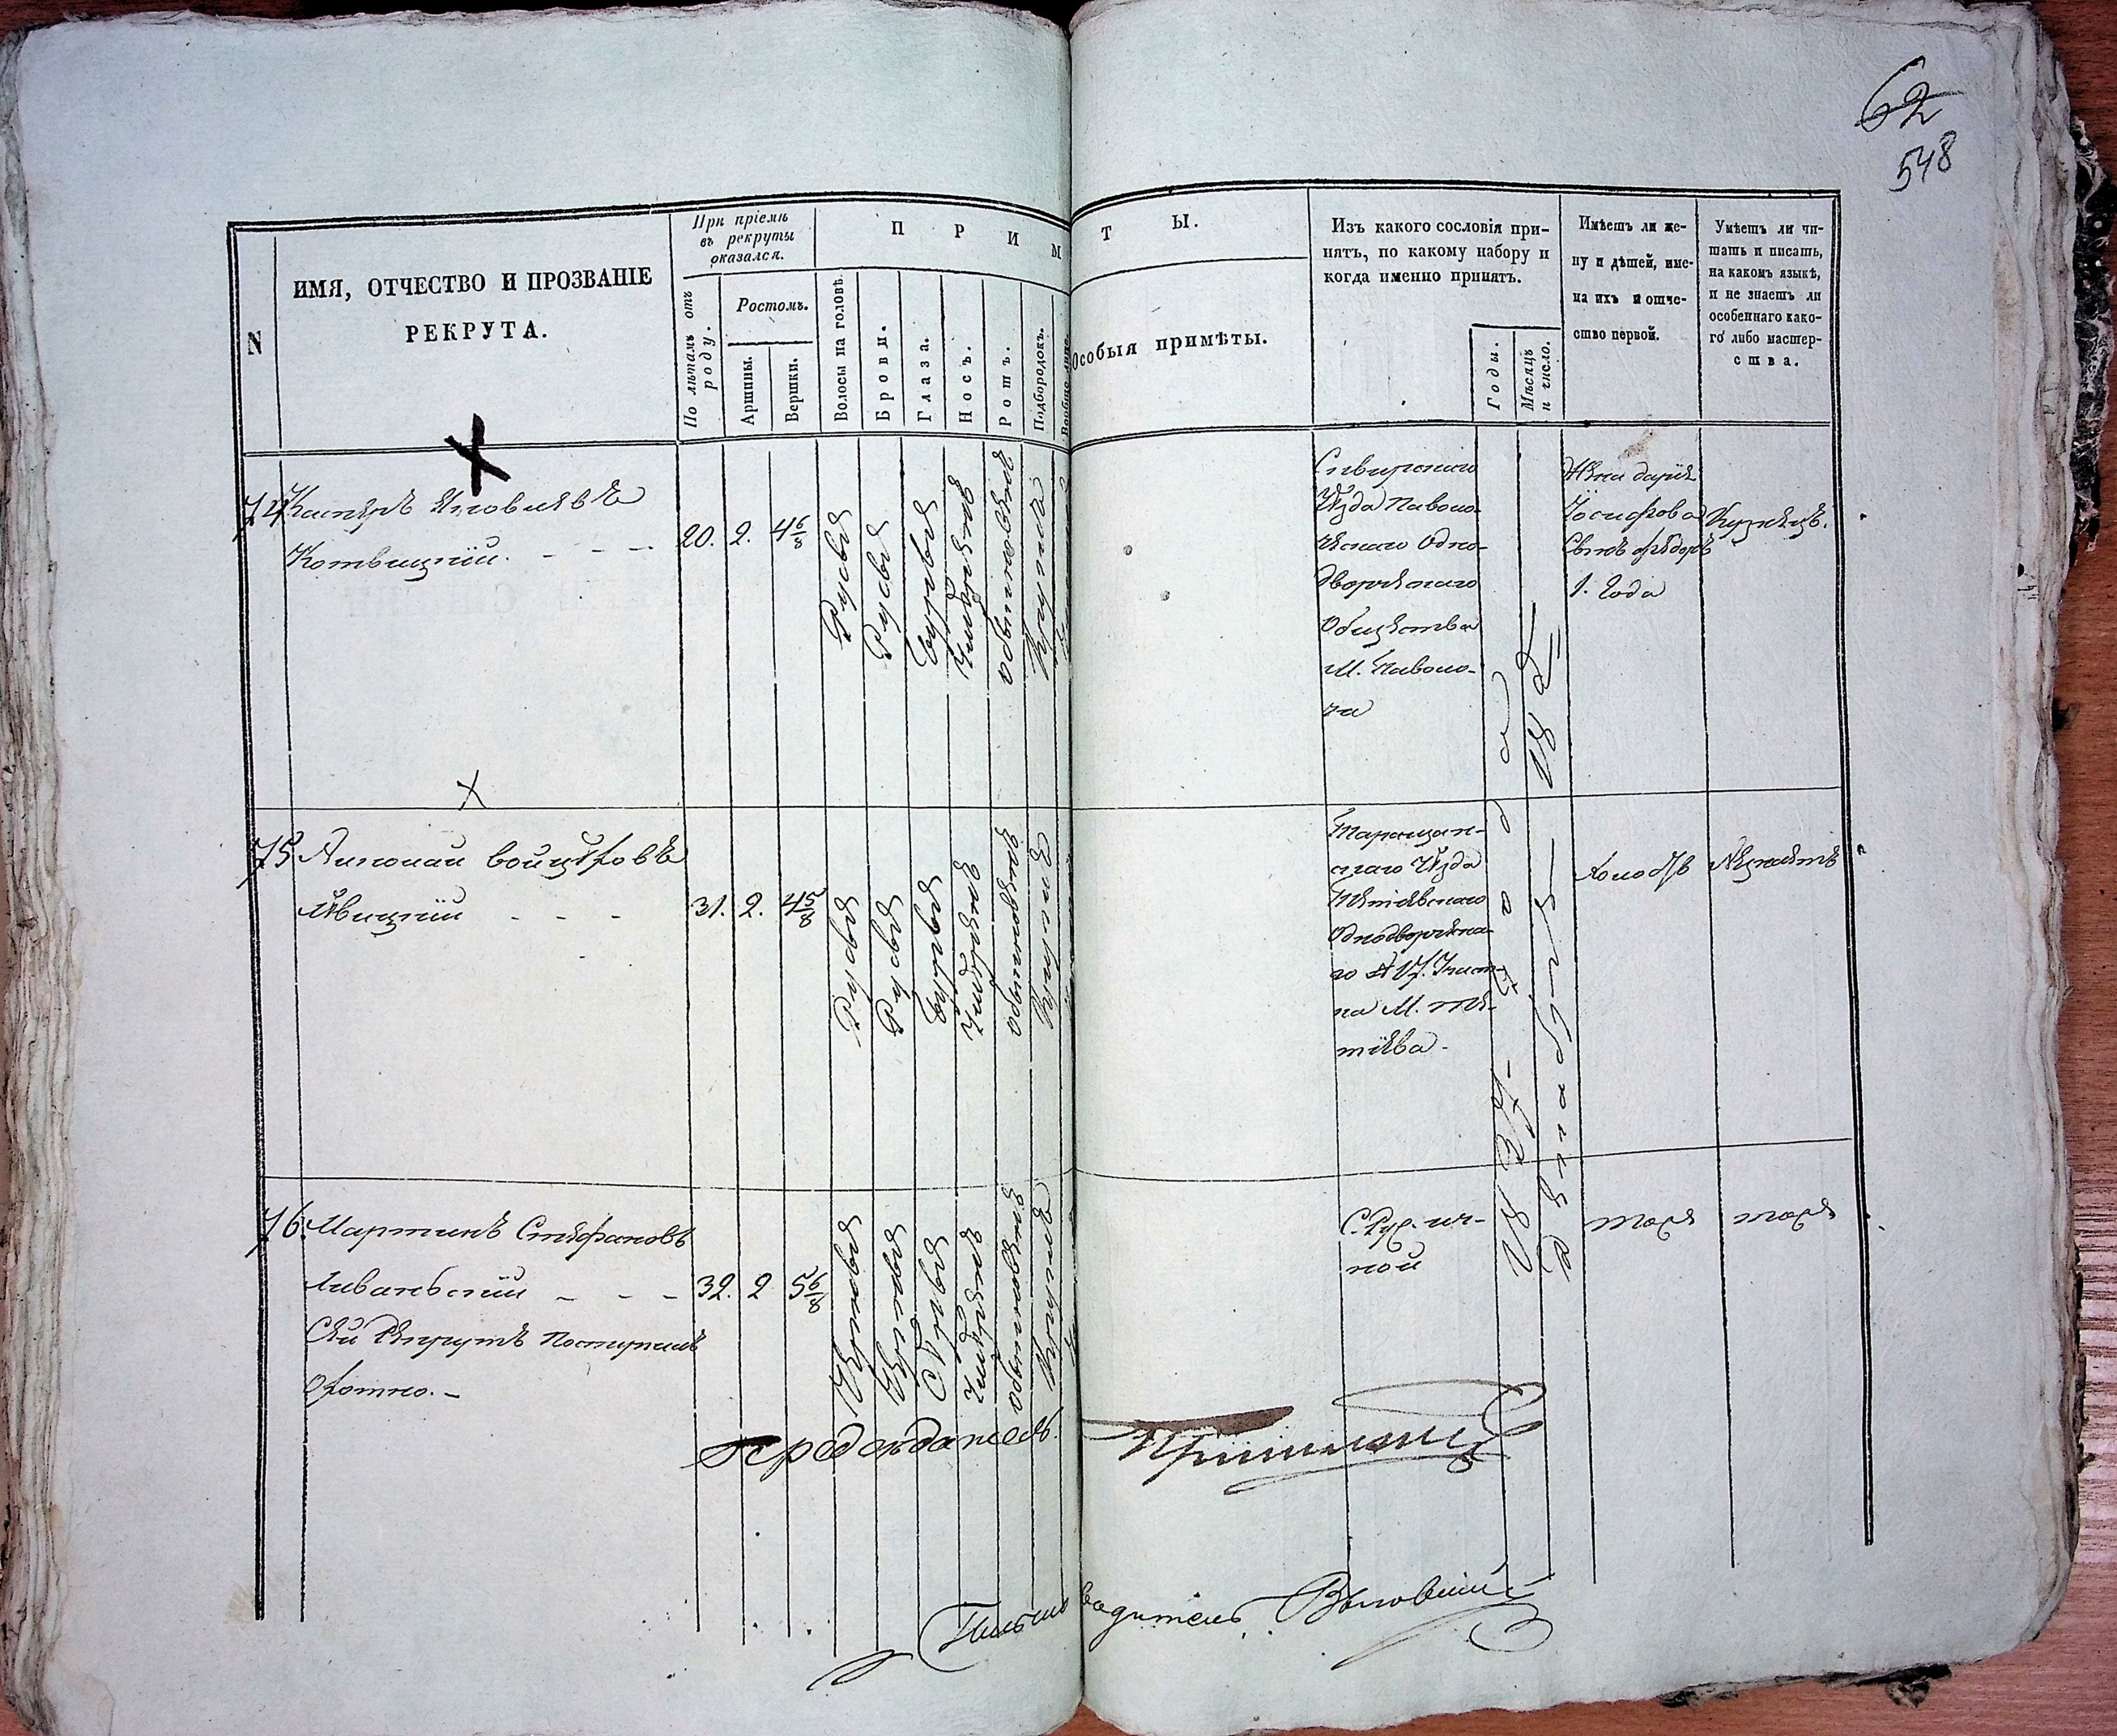 62
548
N
ИМЯ, ОТЧЕСТВО И ПРОЗВАНІЕ
РЕКРУТА.
При пріемѣ
въ рекруты
оказался.
По лѣтамъ отъ
роду.
Ростомъ.
Аршины.
Вершки.
П Р И М Ѣ Т Ы.
Волосы на головѣ.
Брови.
Глаза.
Носъ.
Ротъ.
Подбородокъ.
Вообще лице.
Особыя примѣты.
Изъ какого сословія при-
нятъ, по какому набору и
когда именно принятъ.
Годы.
Мѣсяцъ
и число.
Имѣетъ ли же-
ну и дѣтей, име-
на ихъ и отче-
ство первой.
Умѣетъ ли чи-
тать и писать,
на какомъ языкѣ,
и не знаетъ ли
особеннаго како-
го либо мастер-
ства.
74
Каспяръ Яковлевъ
Котвицкій. - - -
20.
2.
4 6/8
Русыя
Русыя
Умѣренъ
обыкновенъ
Круглъ
Сквирскаго
Уѣзда Паволо-
чскаго Одно-
дворческаго
Общества
М. Паволо-
ча
Жена дарія
Іосифова
Сынъ федоръ
1. года
Кузнецъ.
75
Николай войцеховъ
Явицкій - - -
31.
2.
4 5/8
Русыя
Русыя
Умѣренъ
обыкновенъ
Круглъ
Таращан-
скаго Уѣзда
Тетіевскаго
Однодворческа-
го № 17. Участ-
ка М. Те-
тіева -
Холостъ
Незнаетъ
76.
Мартинъ Стефановъ
Ливанскій - - -
Сей Рекрутъ Поступилъ
Охотно. -
32.
2
5 6/8
Сѣрыя
Умѣренъ
обыкновенъ
Круглъ
тоже
тоже
18 37
года
декабря
18
Предсѣдатель
Письмоводитель